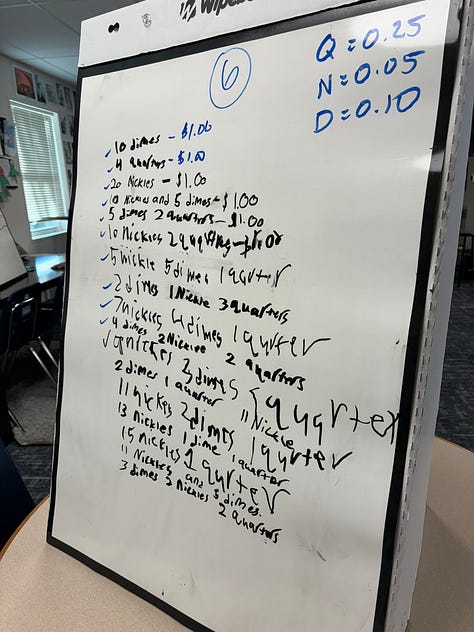 Wipe
6
Q = 0.25
N = 0.05
D = 0.10
10 dimes - $1.00
4 quarters - $1.00
20 Nickles - $1.00
10 Nickles and 5 dimes - $1.00
5 dimes 2 quarters - $1.00
10 Nickles 2
5 nickle 5 dimes 1 qurter
2 dimes 1 Nickle 3 quarters
7 nickles 4 dimes 1 qurter
4 dimes 2 Nickles 2 quarters
2 dimes
2 dimes 1 quarter 11 Nickle
11 nickes 2 dimes 1 qurter
13 Nickles 1 dime 1 quarter
15 nickles 1 qurter
11 Nickles and 5 dimes.
3 dimes 3 Nickles 2 quarters